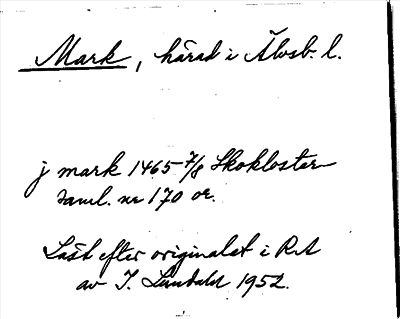 Mark, härad i Älvsb. l.
j mark 1465 7/8 Skokloster
saml. nr 170 or.
Läst efter originalet i RA
av I. Lundahl 1952.